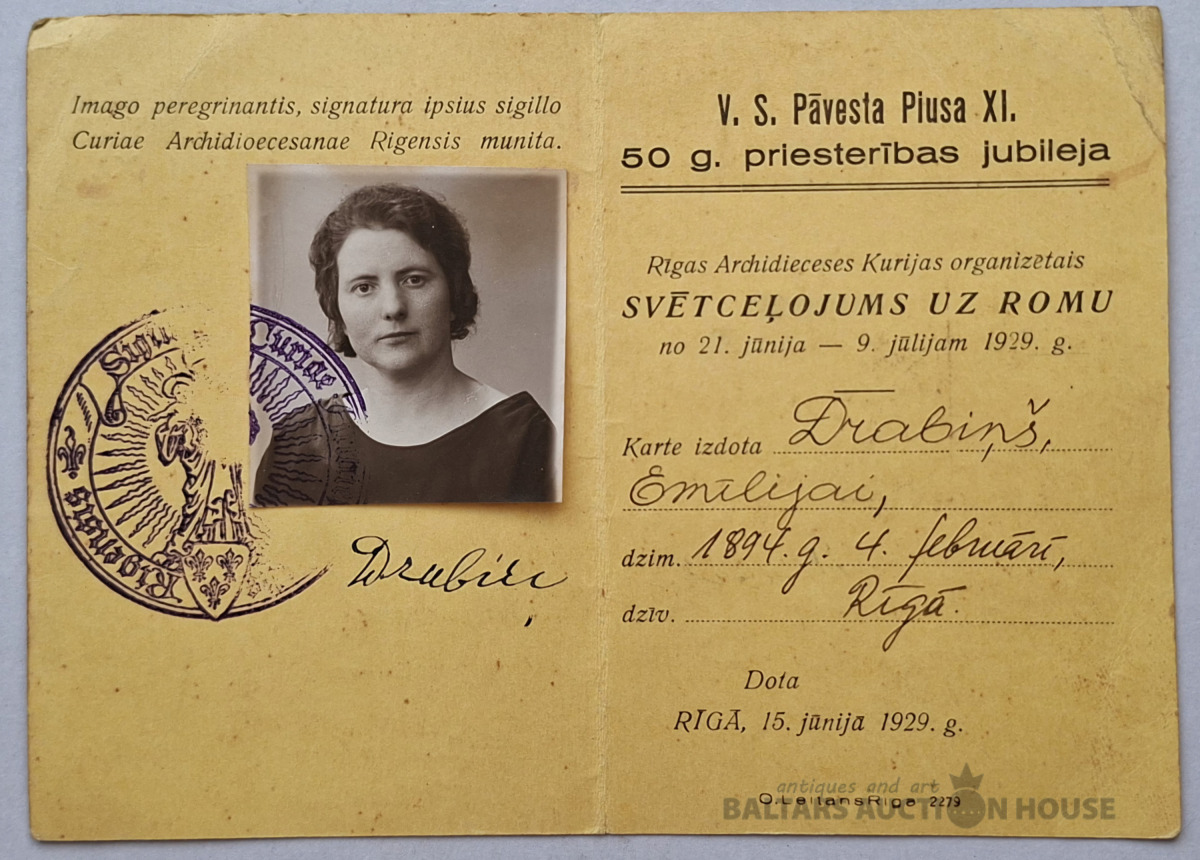 Imago peregrinantis, signatura ipsius sigillo
Curiae Archidioecesanae Rigensis munita.
Sigil Curiae
Rigensis
V. S. Pāvesta Piusa XI.
50 g. priesterības jubileja
Rīgas Archidieceses Kurijas organizētais
SVĒTCEĻOJUMS UZ ROMU
no 21. jūnija — 9. jūlijam 1929. g.
Ķarte izdota Drabiņš,
Emīlijai,
dzim. 1894. g. 4. februārī,
dzīv. Rīgā.
Dota
RĪGĀ, 15. jūnijā 1929. g.
antiques and art
O. Leitans Riga 2279
BALTARS AUCTION HOUSE